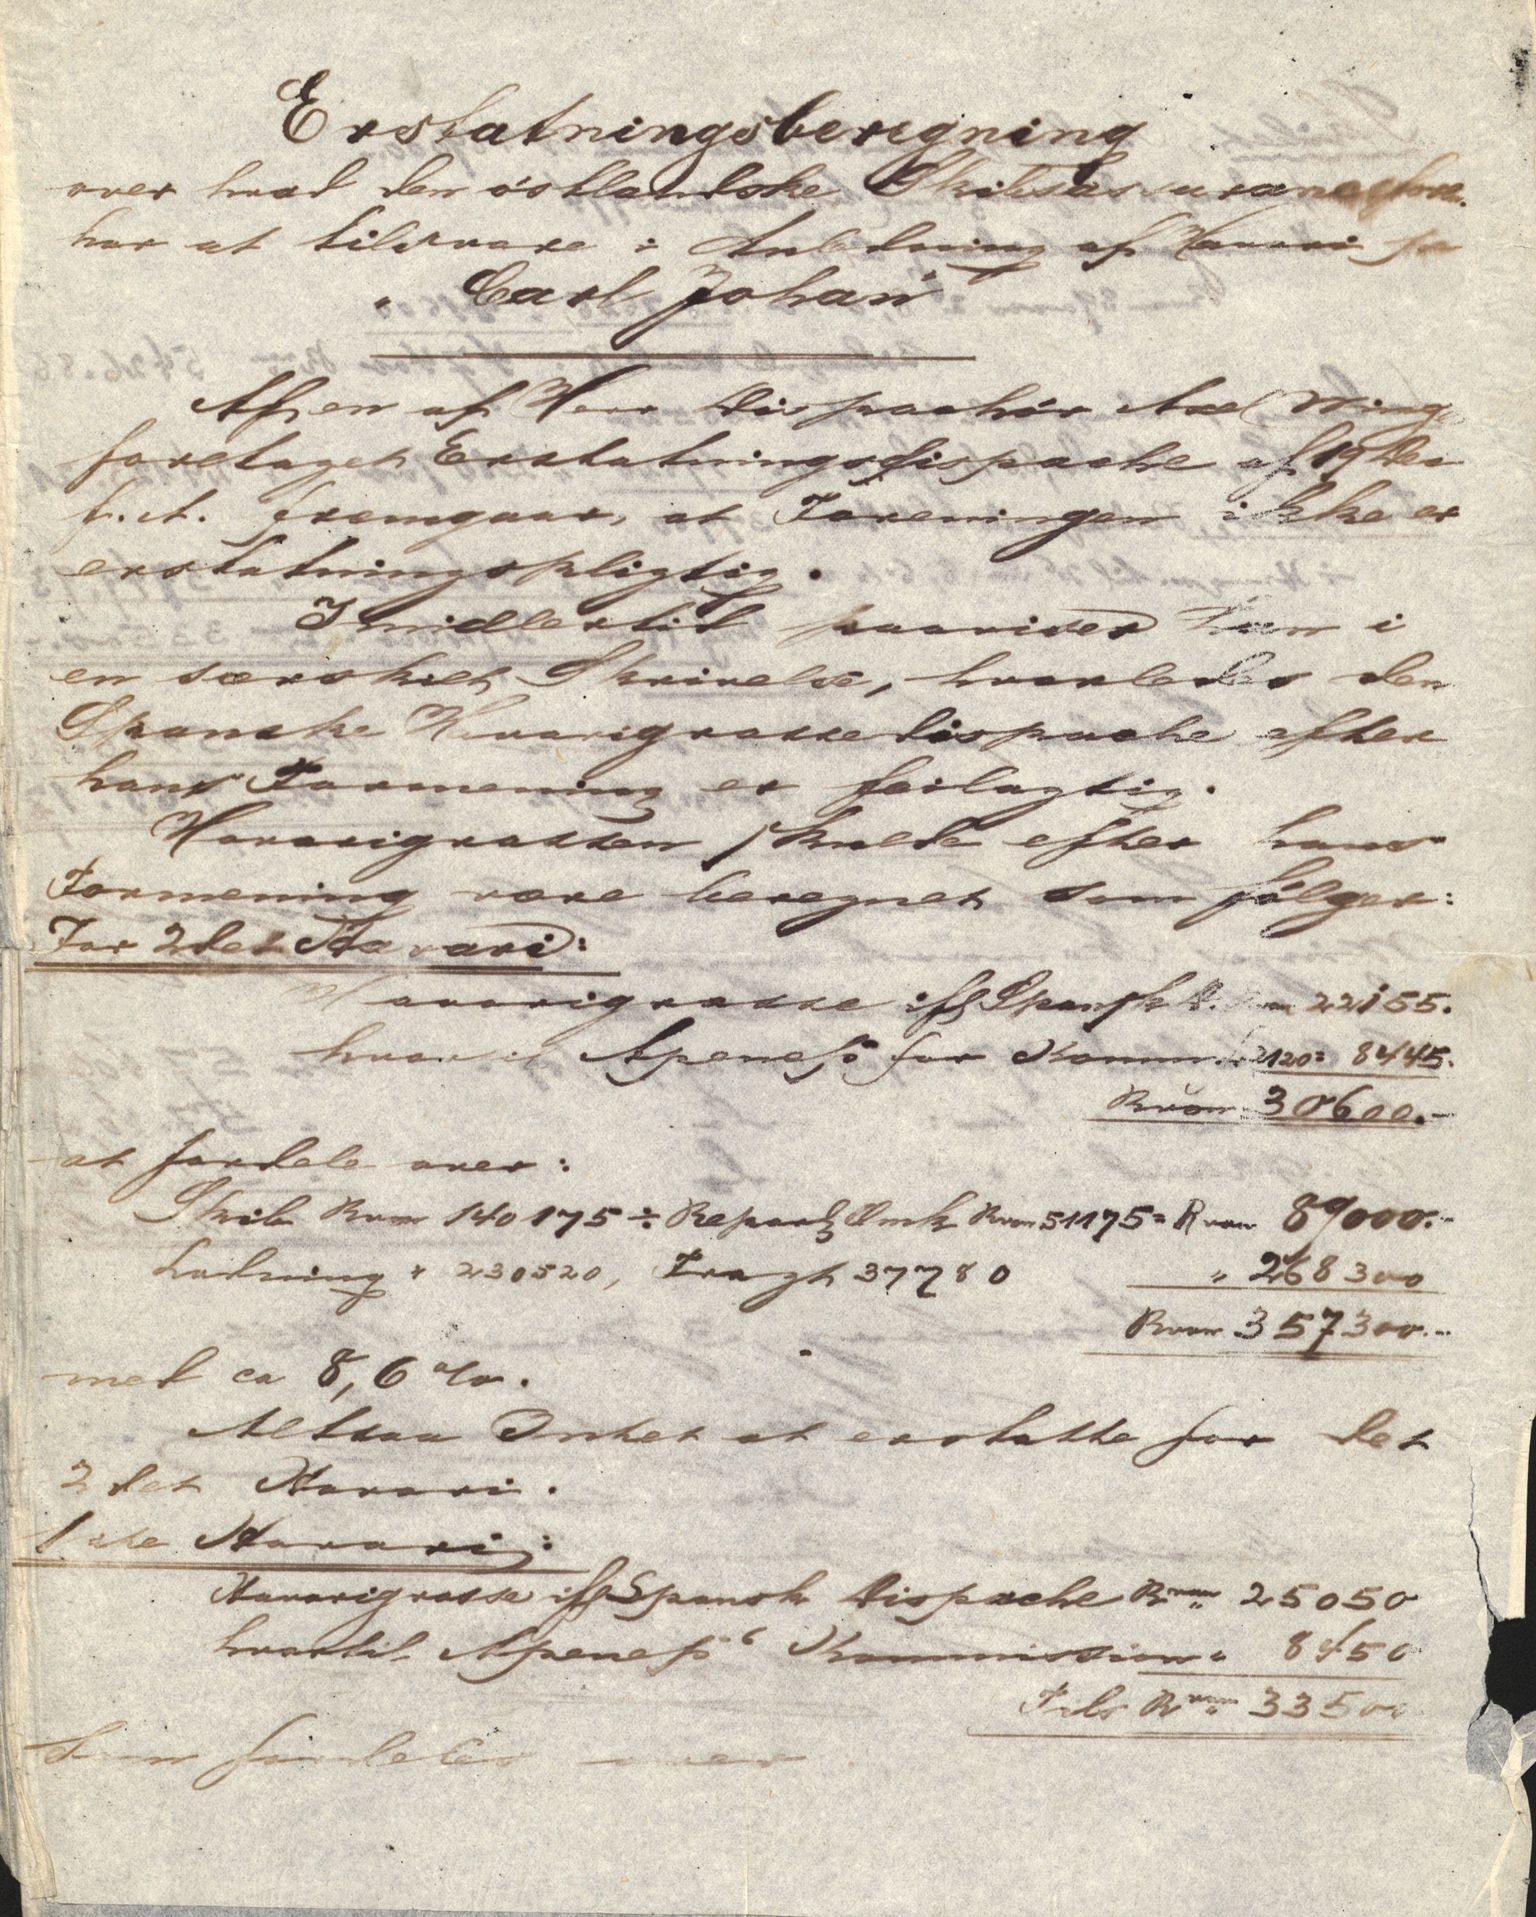 Erstatningsberegning
over hvad den østlandske Skibsassuranceforen.
har at tilsvare i Anledning af Havari paa
"Carl Johan"
Af en af Herr Dispachør Axel Winge
foretaget Erstatningsdispache af 19 des
f. A. fremgaar, at Foreningen ikke er
erstatningspligtig.
Imidlertid paaviser han i
en særskilt Skrivelse, hvorledes den
Spanske Havarigrossedispache efter
hans Formening er feilagtig.
Havarigrossen skulde efter hans
Formening være beregnet som følger:
For 2det Havari:
Havarigrosse ifl Spansk D. Rvon 22155.
hvortil Apeness for Komm. 2120= 8445.
Rvon 30600.-
at fordele over:
Skib Rvon 140175 ÷ Repart Omk Rvon 51175= Rvon 89000.-
Ladning " 230520, Fragt 37780 " 268300
Rvon 357300.-
med ca 8,6 %.
Altsaa Intet at erstatte for det
2det Havari.
1ste Havari:
Havarigrosse ifl Spansk Dispache Rvon 25050
hvortil Apeness' Kommission " 8450
Tils Rvon 33500
som fordeles over